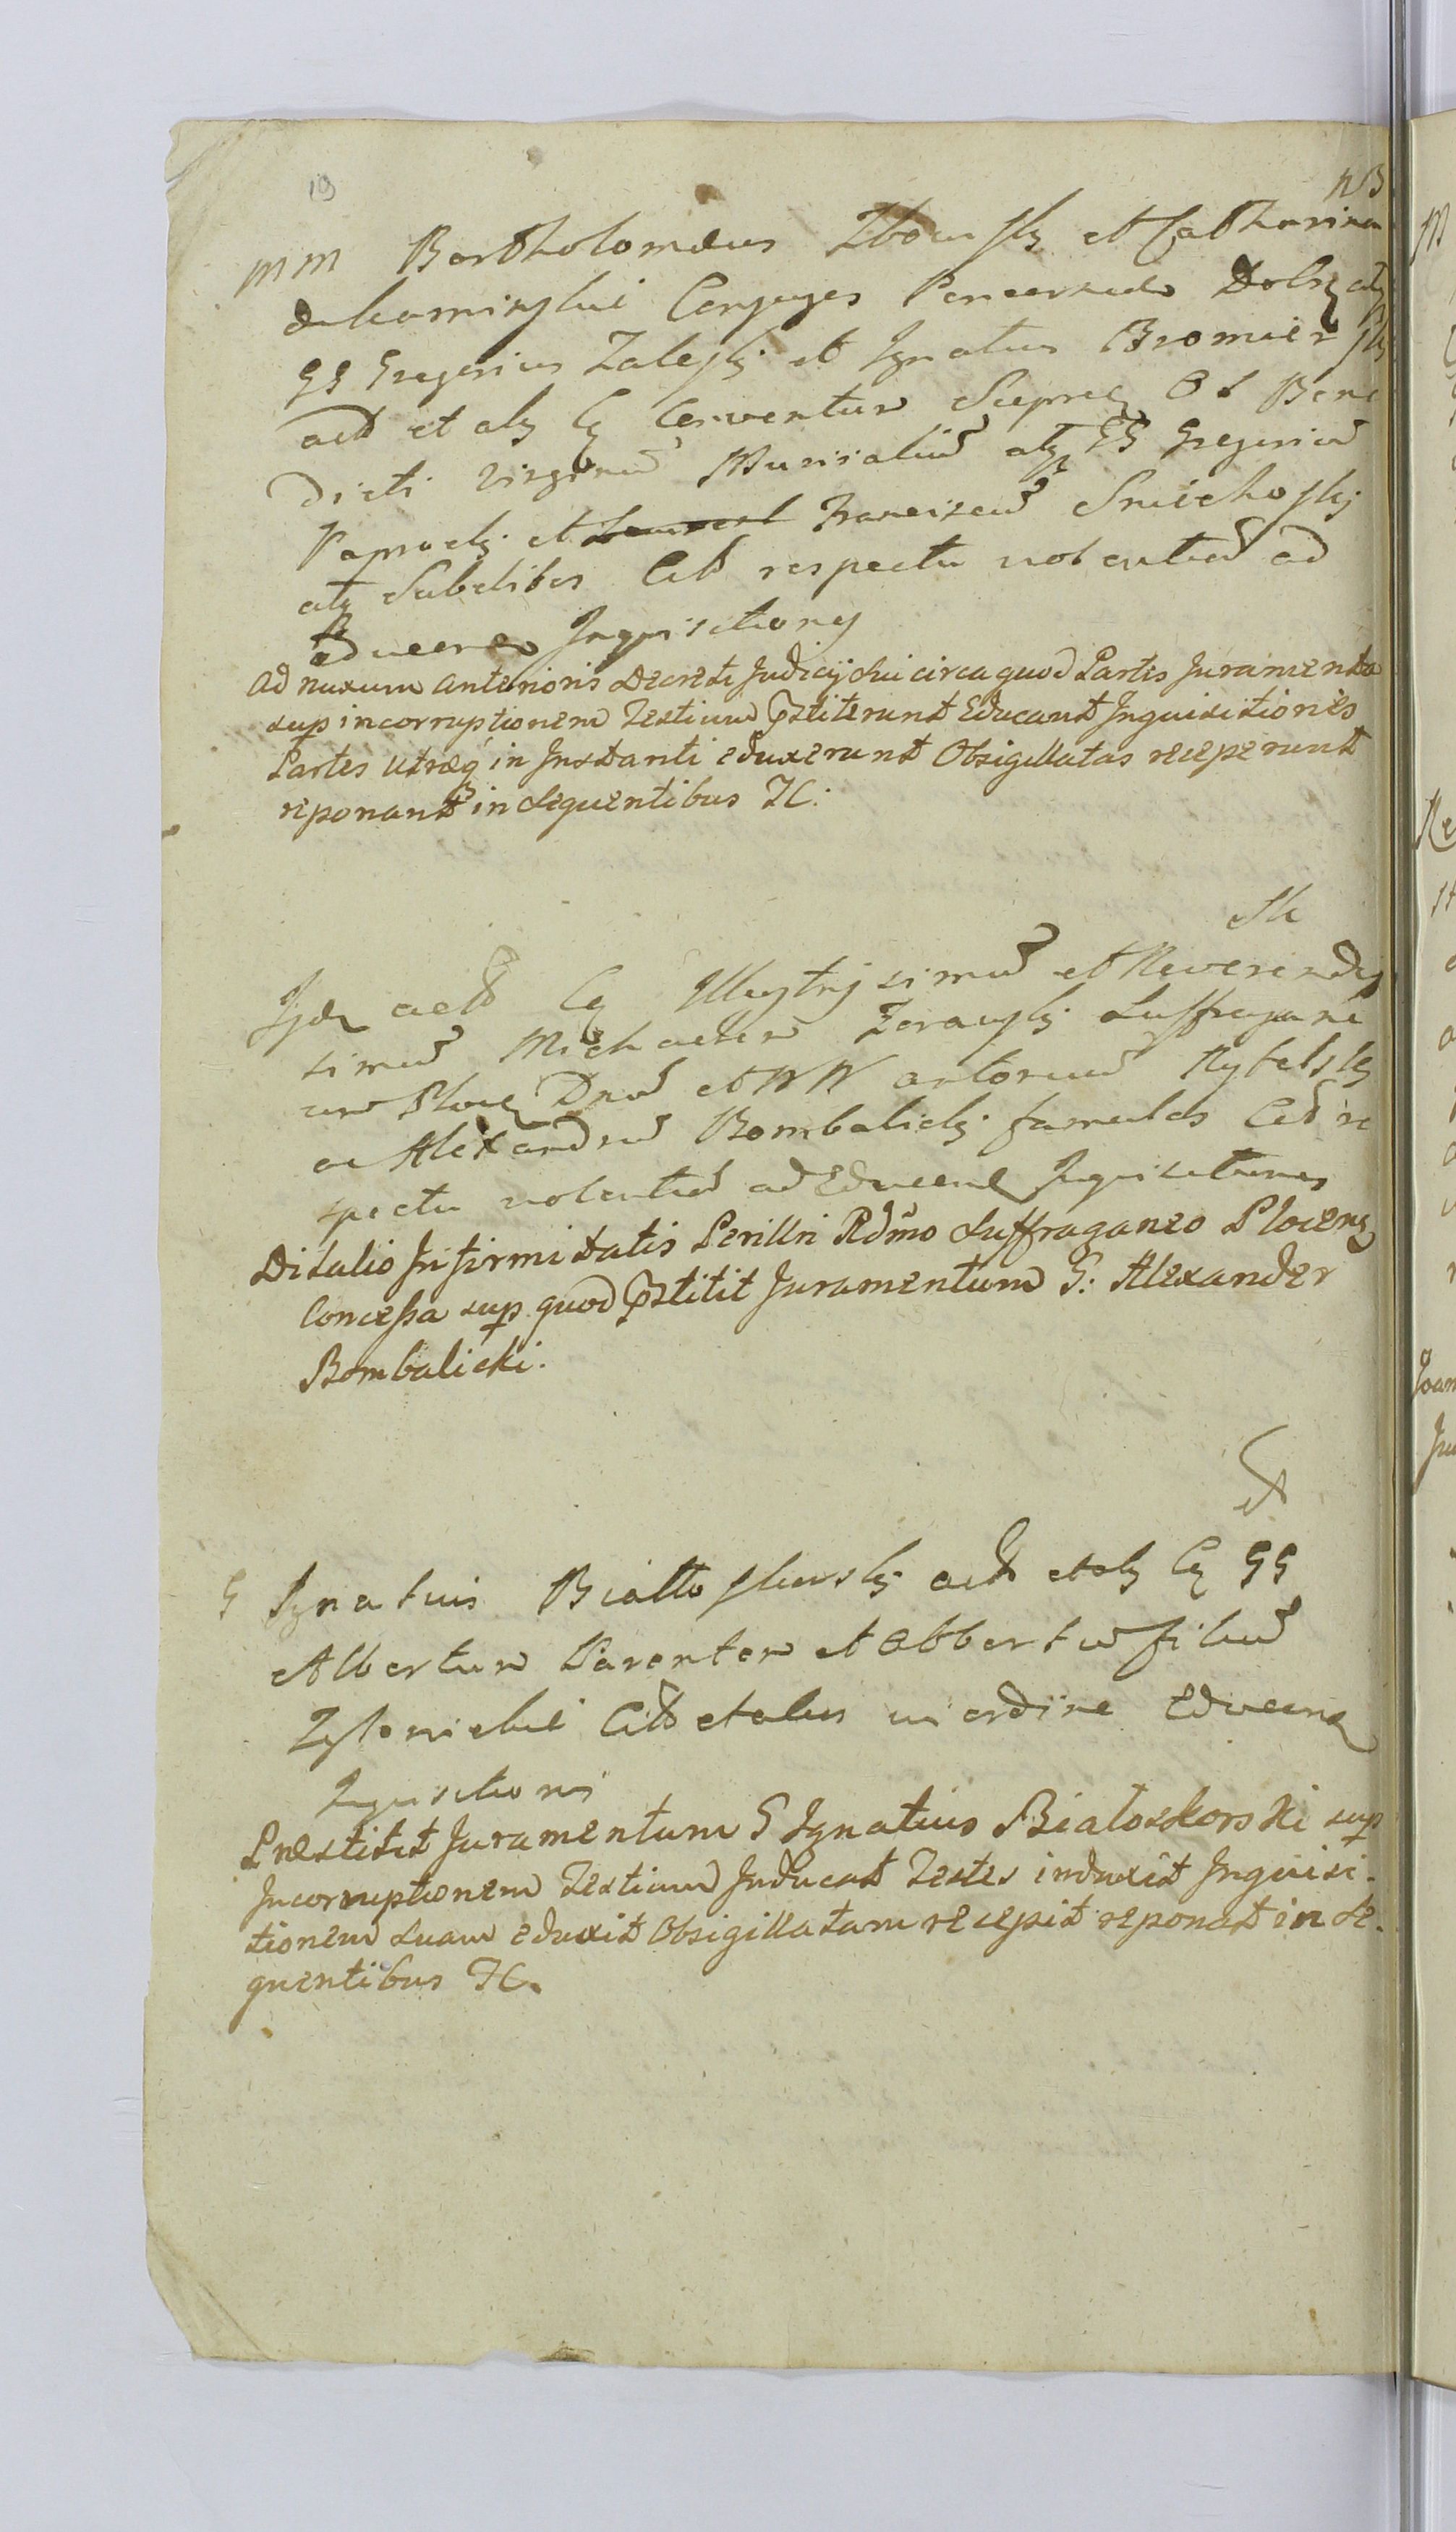 19
NB
MM Bartholomæus Zbowsky et Catharina
de Kaminskie Conjuges Pincernide Dobrz atq
GG Gregorius Zalesky et Ignatius Bromiersky
act et aly Cq Conventum Sierpc O S Bene
dicti Virginu Monialiu atq GG Gregoriu
Paprocky et Franciscu Smiechosky
atq Subditos Citt respectu nolentiu ad
educend Inquisitiony
Ad nuxum anterioris Decreti Judicij sui circa quod Partes Juramenta
sup incorruptionem Testium pstiterunt Educant Inquisitiones
Partes utræq in Instanti eduxerunt Obsigillatas receperunt
reponant in sequentibus TC:
Sk
Ijde actt Cq Illustrissimu et Reverendis
simu Michaelem Zorawsky Suffragane
um Ploce Dnu et WW Antoniu Rybelsky
ac Alexandru Bombalicky famulos Citt re
spectu nolentiu ad Educend Inquisitiones
Dilatio Infirmitatis Perillri Rdmo Suffraganeo Plocens
Concessa sup quod pstitit Juramentum G: Alexander
Bombalicki.
G Ignatius Biallo skorsky actt et aly Cq GG
Albertum Parentem et Albertum filiu
Citt et alios in ordine Educend
Inquisitionis
Præstitit Juramentum G Ignatius Białoskorski sup
Incorruptionem Testium Inducat Testes induxit Inquisi-
tionem suam eduxit Obsigillatam recepit reponat in se-
quentibus TC.